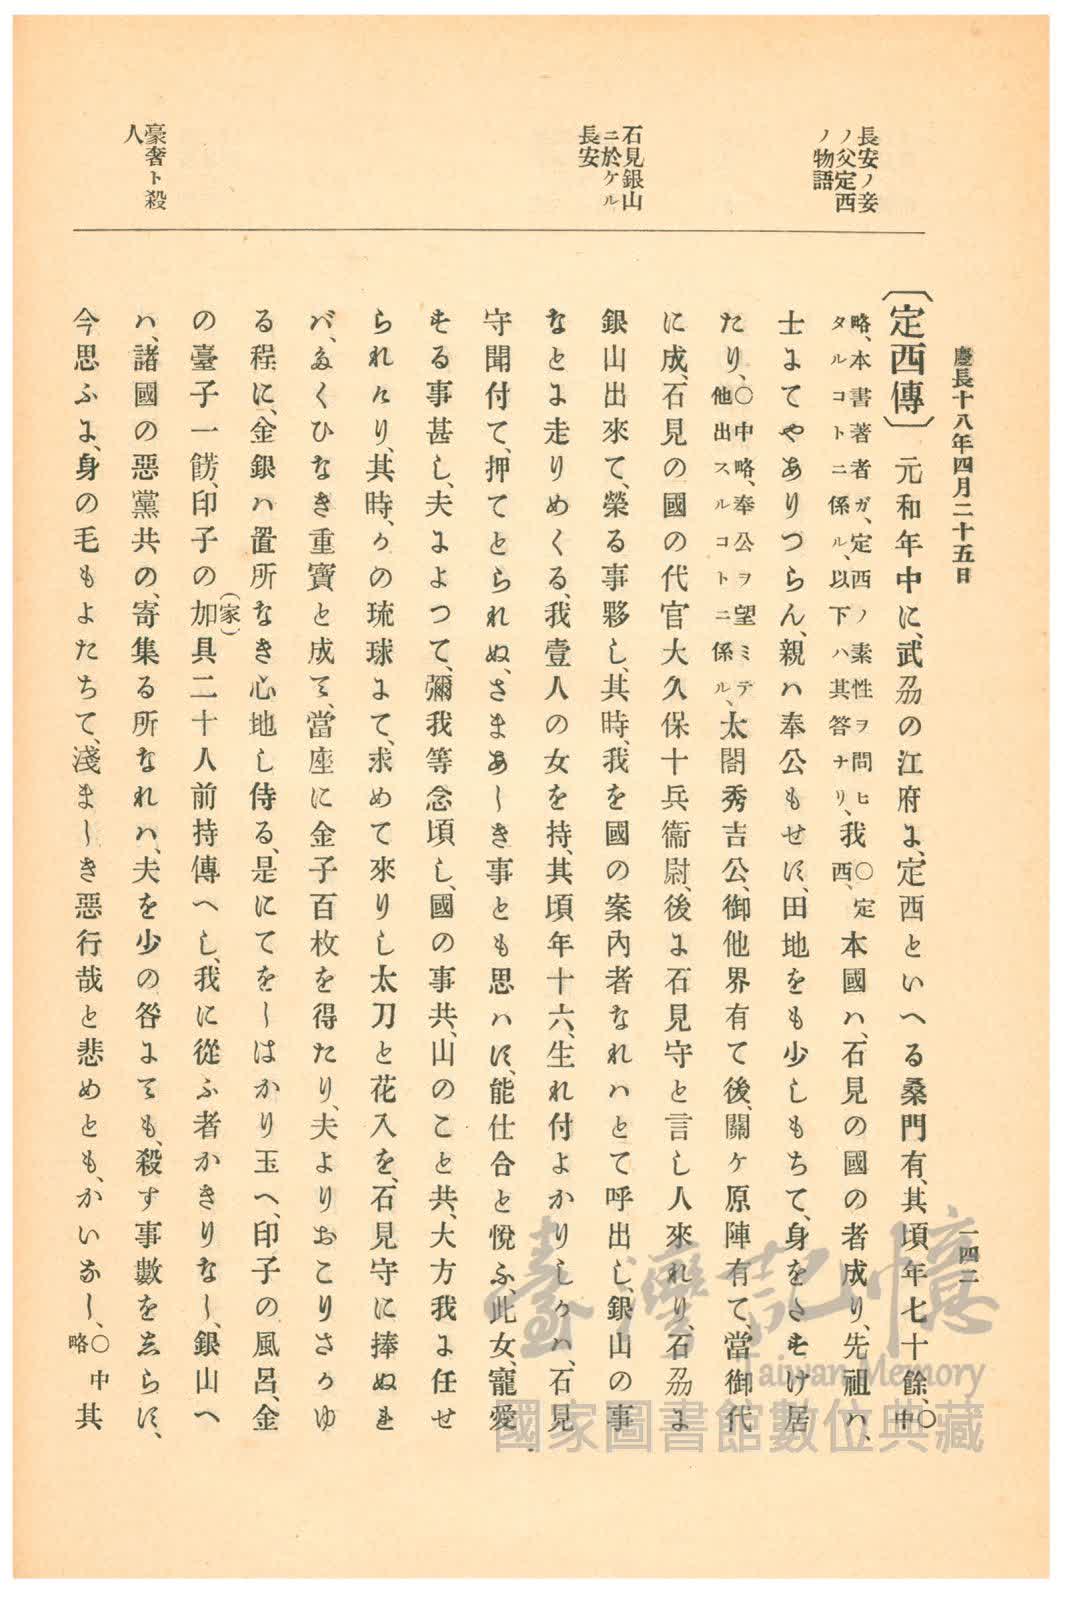 慶長十八年四月二十五日
一四二
長安ノ妾
ノ父定西
ノ物語
石見銀山
ニ於ケル
長安
豪奢ト殺
人
〔定西傳〕 元和年中に、武刕の江府よ、定西といへる桑門有、其頃年七十餘、〇中
略、本書著者ガ、定西ノ素性ヲ問ヒタルコトニ係ル、以下ハ其答ナリ、我〇定西、本國ハ、石見の國の者成り、先祖ハ、
士よてやありつらん、親ハ奉公もせに、田地をも少しもちて、身をさもけ居
たり、〇中略、奉公ヲ望ミテ他出スルコトニ係ル、太閤秀吉公、御他界有て後、關ケ原陣有て、當御代
に成、石見の國の代官大久保十兵衞尉、後よ石見守と言し人來れり、石刕よ
銀山出來て、榮る事夥し、其時、我を國の案內者なれハとて呼出し、銀山の事
なとよ走りめくる、我壹人の女を持、其頃年十六、生れ付よかりしかハ、石見
守聞付て、押てとられぬ、さまあしき事とも思ハに、能仕合と悅ふ、此女、寵愛
もる事甚し、夫よよつて、彌我等念頃し、國の事共、山のこと共、大方我よ任せ
られけり、其時、かの琉球よて、求めて來りし太刀と花入を、石見守に捧ぬれ
バ、よくひなき重寶と成て、當座に金子百枚を得たり、夫よりおこりさかゆ
る程に、金銀ハ置所なき心地し侍る、是にてをしはかり玉へ、印子の風呂、金
の臺子一餝、印子の加(家)具二十人前持傳へし、我に從ふ者かきりなし、銀山へ
ハ、諸國の惡黨共の、寄集る所なれハ、夫を少の咎よても、殺す事數をしらに、
今思ふよ、身の毛もよたちて、淺ましき惡行哉と悲めとも、かいなし、〇中略 其
臺灣記憶
Taiwan Memory
國家圖書館數位典藏